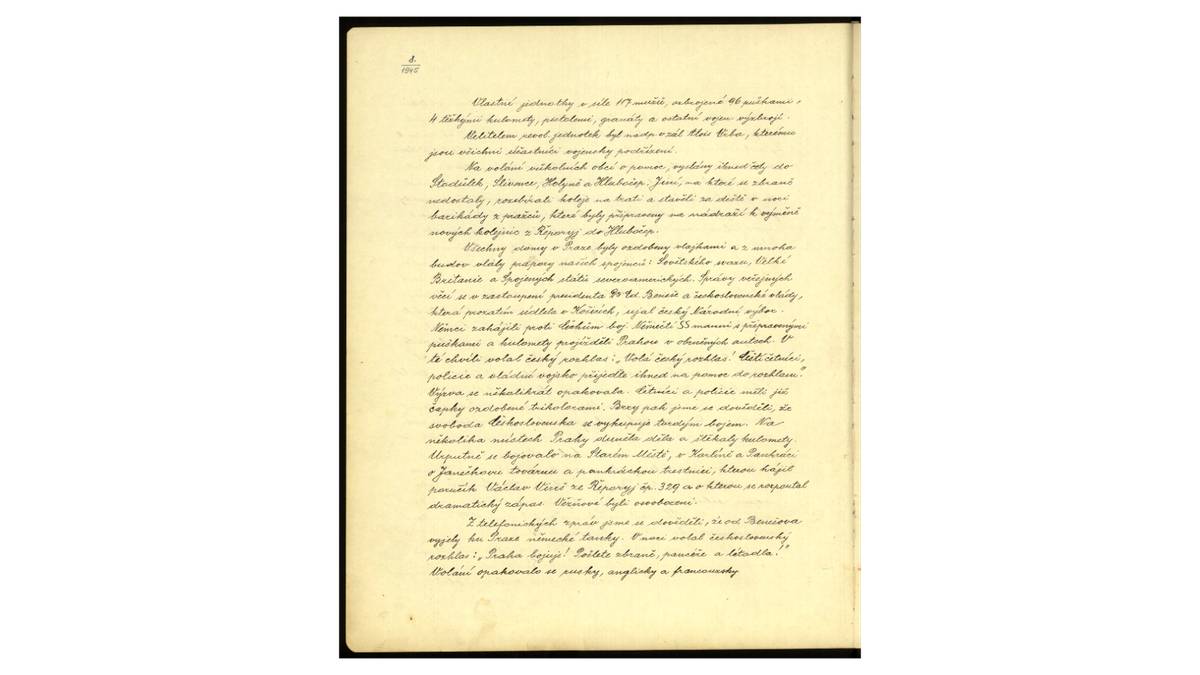 8.
1945
Vlastní jednotky v síle 117 mužů, ozbrojené 96 puškami,
4 těžkými kulomety, pistolemi, granáty a ostatní vojen. výzbrojí.
Velitelem revol. jednotek byl nadp. v zál. Alois Vrba, kterému
jsou všichni účastníci vojensky podřízeni.
Na volání okolních obcí o pomoc, vyslány ihned čety do
Stodůlek, Slivence, Holyně a Hlubočep. Jiní, na které se zbraně
nedostaly, rozebírali koleje na trati a stavěli za deště v noci
barikády z pražců, které byly připraveny na nádraží k výměně
nových kolejnic z Řeporyj do Hlubočep.
Všechny domy v Praze byly ozdobeny vlajkami a z mnoha
budov vlály prapory našich spojenců: Sovětského svazu, Velké
Britanie a Spojených států severoamerických. Správy veřejných
věcí se v zastoupení presidenta Dr Ed. Beneše a československé vlády,
která prozatím sídlela v Košicích, ujal český Národní výbor.
Němci zahájili proti Čechům boj. Němečtí SS manni s připravenými
puškami a kulomety projížděli Prahou v obrněných autech. V
té chvíli volal český rozhlas: „Volá český rozhlas! Čeští četníci,
policie a vládní vojsko přijeďte ihned na pomoc do rozhlasu."
Výzva se několikrát opakovala. Četníci a policie měli již
čapky ozdobené trikolorami. Brzy pak jsme se dověděli, že
svoboda Československa se vykupuje tvrdým bojem. Na
několika místech Prahy duněla děla a štěkaly kulomety.
Urputně se bojovalo na Starém Městě, v Karlíně a Pankráci
o Janečkovu továrnu a pankráckou trestnici, kterou hájil
poručík Václav ze Řeporyj čp. 329 a o kterou se rozpoutal
dramatický zápas. Vězňové byli osvobozeni.
Z telefonických zpráv jsme se dověděli, že od Benešova
vyjely ku Praze německé tanky. V noci volal československý
rozhlas: „Praha bojuje! Pošlete zbraně, pancéře a letadla!"
Volání opakovalo se rusky, anglicky a francouzsky